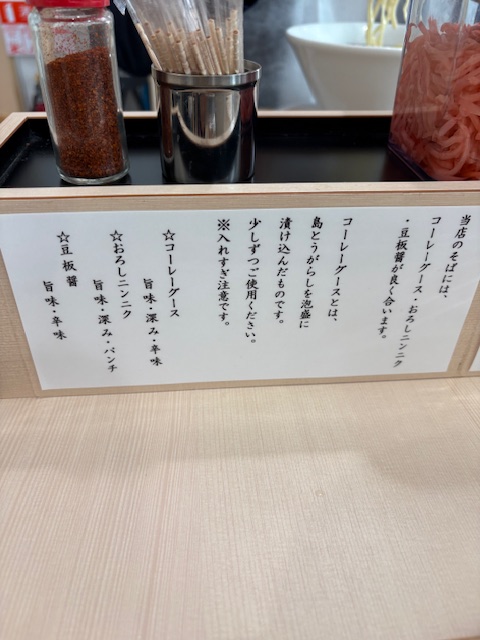 当店のそばには、
コーレーグース・おろしニンニク
・豆板醤が良く合います。
コーレーグースとは、
島とうがらしを泡盛に
漬け込んだものです。
少しずつご使用ください。
※入れすぎ注意です。
☆コーレーグース
旨味・深み・辛味
☆おろしニンニク
旨味・深み・パンチ
☆豆板醤
旨味・辛味